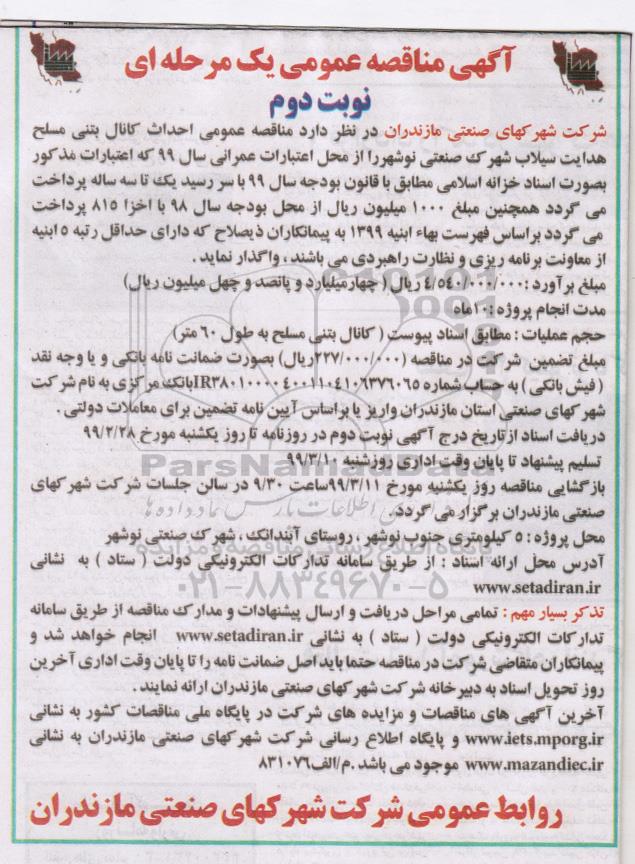 آگهی مناقصه عمومی یک مرحله ای
نوبت دوم
شرکت شهرکهای صنعتی مازندران در نظر دارد مناقصه عمومی احداث کانال بتنی مسلح
هدایت سیلاب شهرک صنعتی نوشهررا از محل اعتبارات عمرانی سال ۹۹ که اعتبارات مذکور
بصورت اسناد خزانه اسلامی مطابق با قانون بودجه سال ۹۹ با سر رسید یک تا سه ساله پرداخت
می گردد همچنین مبلغ ۱۰۰۰ میلیون ریال از محل بودجه سال ۹۸ با اخزا ۸۱۵ پرداخت
می گردد براساس فهرست بهاء ابنیه ۱۳۹۹ به پیمانکاران ذیصلاح که دارای حداقل رتبه ۵ ابنیه
از معاونت برنامه ریزی و نظارت راهبردی می باشند ، واگذار نماید .
مبلغ برآورد :۴/۵۴۰/۰۰۰/۰۰۰ ریال ( چهارمیلیارد و پانصد و چهل میلیون ریال)
مدت انجام پروژه :۱۰ماه
حجم عملیات : مطابق اسناد پیوست ( کانال بتنی مسلح به طول ۶۰ متر)
مبلغ تضمین شرکت در مناقصه (۲۲۷/۰۰۰/۰۰۰ریال) بصورت ضمانت نامه بانکی و یا وجه نقد
( فیش بانکی ) به حساب شماره IR۳۸۰۱۰۰۰۰۴۰۰۱۱۰۴۱۰۶۳۷۶۰۶۵بانک مرکزی به نام شرکت
شهرکهای صنعتی استان مازندران واریز یا براساس آیین نامه تضمین برای معاملات دولتی .
دریافت اسناد ازتاریخ درج آگهی نوبت دوم در روزنامه تا روز یکشنبه مورخ ۹۹/۲/۲۸
تسلیم پیشنهاد تا پایان وقت اداری روزشنبه ۹۹/۳/۱۰
بازگشایی مناقصه روز یکشنبه مورخ ۹۹/۳/۱۱ساعت ۹/۳۰ در سالن جلسات شرکت شهرکهای
صنعتی مازندران برگزار می گردد.
محل پروژه : ۵ کیلومتری جنوب نوشهر ، روستای آبندانک ، شهرک صنعتی نوشهر
آدرس محل ارائه اسناد : از طریق سامانه تدارکات الکترونیکی دولت ( ستاد ) به نشانی
www.setadiran.ir
تذکر بسیار مهم : تمامی مراحل دریافت و ارسال پیشنهادات و مدارک مناقصه از طریق سامانه
تدارکات الکترونیکی دولت ( ستاد ) به نشانی www.setadiran.ir انجام خواهد شد و
پیمانکاران متقاضی شرکت در مناقصه حتما باید اصل ضمانت نامه را تا پایان وقت اداری آخرین
روز تحویل اسناد به دبیرخانه شرکت شهرکهای صنعتی مازندران ارائه نمایند .
آخرین آگهی های مناقصات و مزایده های شرکت در پایگاه ملی مناقصات کشور به نشانی
www.iets.mporg.ir و پایگاه اطلاع رسانی شرکت شهرکهای صنعتی مازندران به نشانی
www.mazandiec.ir موجود می باشد .م/الف۸۳۱۰۷۶
روابط عمومی شرکت شهرکهای صنعتی مازندران
ParsNamadData
پایگاه اطلاع رسانی مناقصه و مزایده
۰۲۱-۸۸۳۴۹۶۷۰-۵